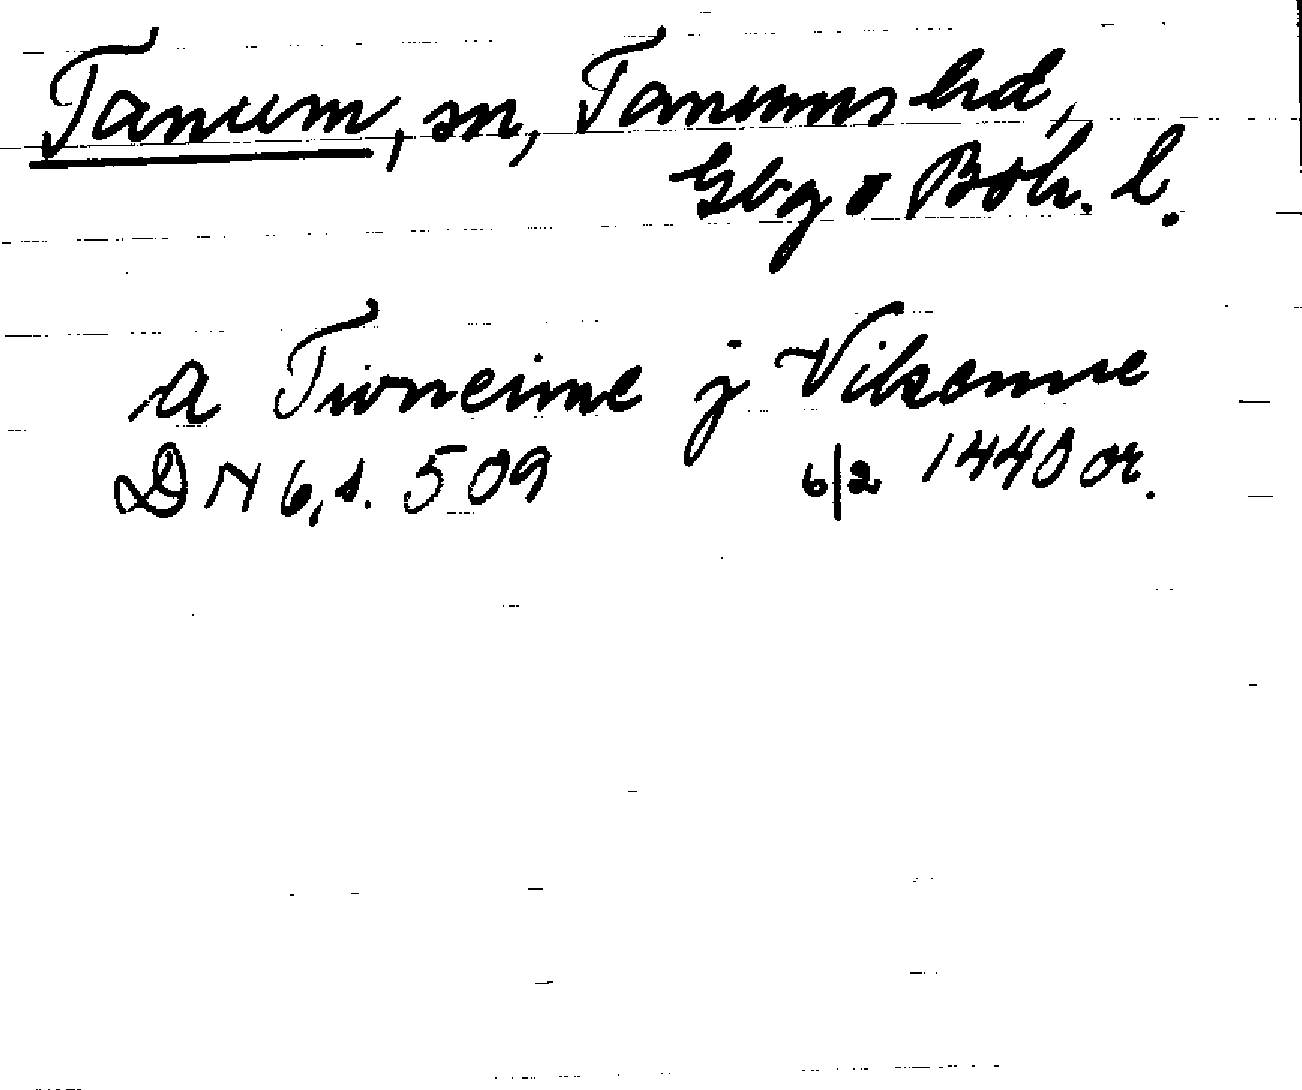 Tanum, sn, Tanums hd,
Gbg o Boh. l.
a Twneime j Vikenne
DN 6, s. 509 6/2 1440 or.